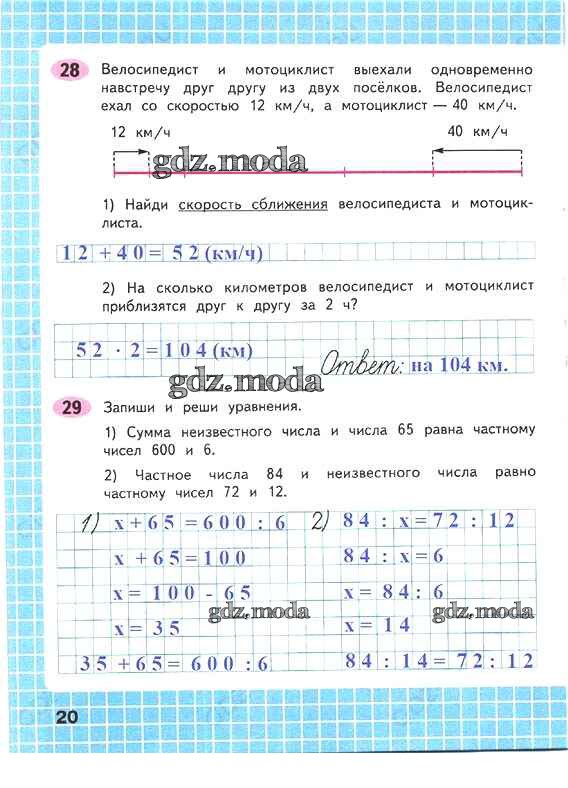 28 Велосипедист и мотоциклист выехали одновременно
навстречу друг другу из двух посёлков. Велосипедист
ехал со скоростью 12 км/ч, а мотоциклист — 40 км/ч.
12 км/ч 40 км/ч
gdz.moda
1) Найди скорость сближения велосипедиста и мотоцик-
листа.
12 + 40 = 52 (км/ч)
2) На сколько километров велосипедист и мотоциклист
приблизятся друг к другу за 2 ч?
52 · 2 = 104 (км)
Ответ: на 104 км.
gdz.moda
29 Запиши и реши уравнения.
1) Сумма неизвестного числа и числа 65 равна частному
чисел 600 и 6.
2) Частное числа 84 и неизвестного числа равно
частному чисел 72 и 12.
1) x + 65 = 600 : 6 2) 84 : x = 72 : 12
x + 65 = 100 84 : x = 6
x = 100 - 65 x = 84 : 6
gdz.moda gdz.moda
x = 35 x = 14
35 + 65 = 600 : 6 84 : 14 = 72 : 12
20